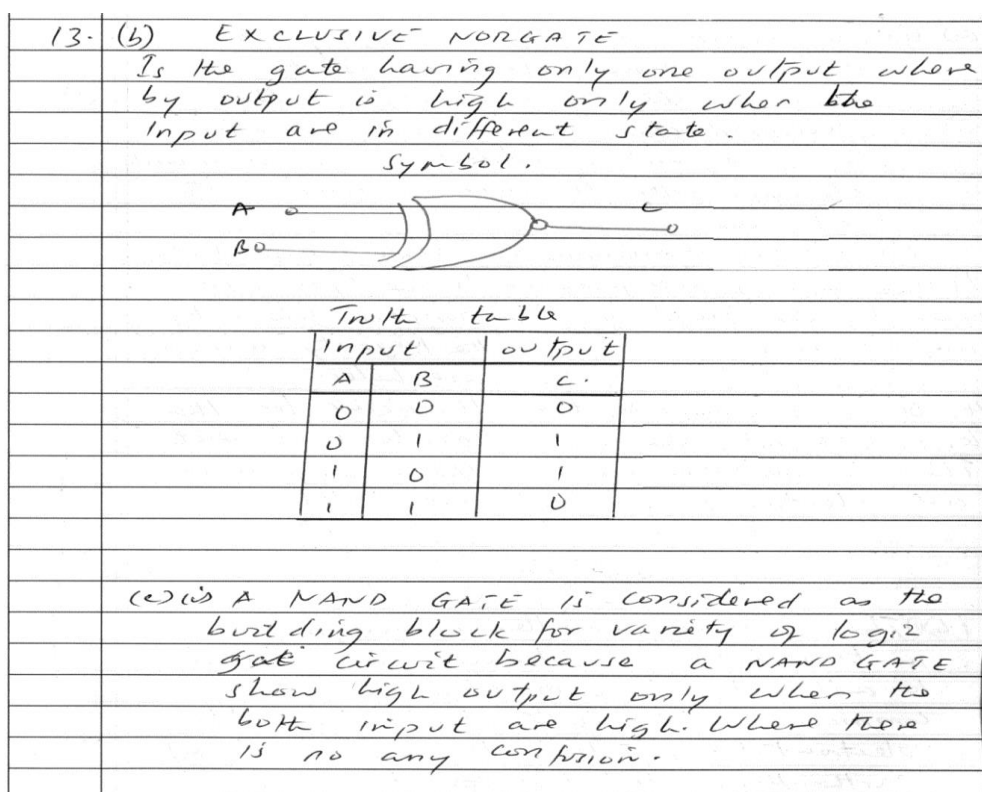 13. (b) EXCLUSIVE NORGATE
Is the gate having only one output where
by output is high only when the
Input are in different state.
Symbol.
A C
B
Truth table
Input output
A B C.
0 0 0
0 1 1
1 0 1
1 1 0
(c) (i) A NAND GATE is considered as the
building block for variety of logic
gate circuit because a NAND GATE
show high output only when the
both input are high. Where there
is no any confusion.